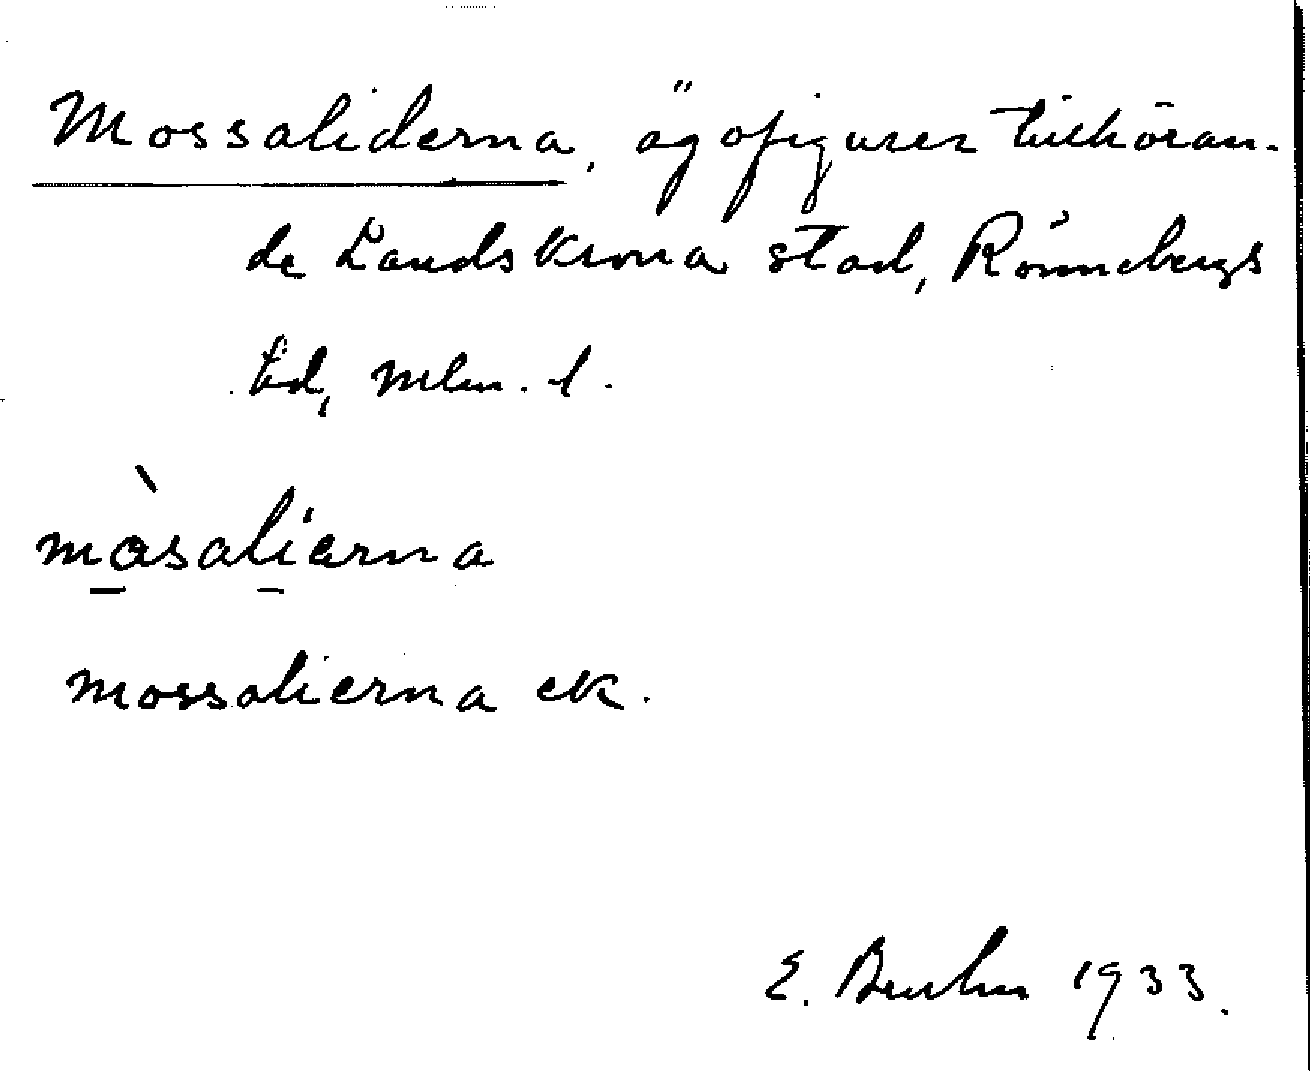 Mossaliderna, ägofigurer tillhöran-
de Landskrona stad, Rönnebergs
hd, Mlm. l.
mòsalierna
mossalierna ek.
E. Bruhn 1933.